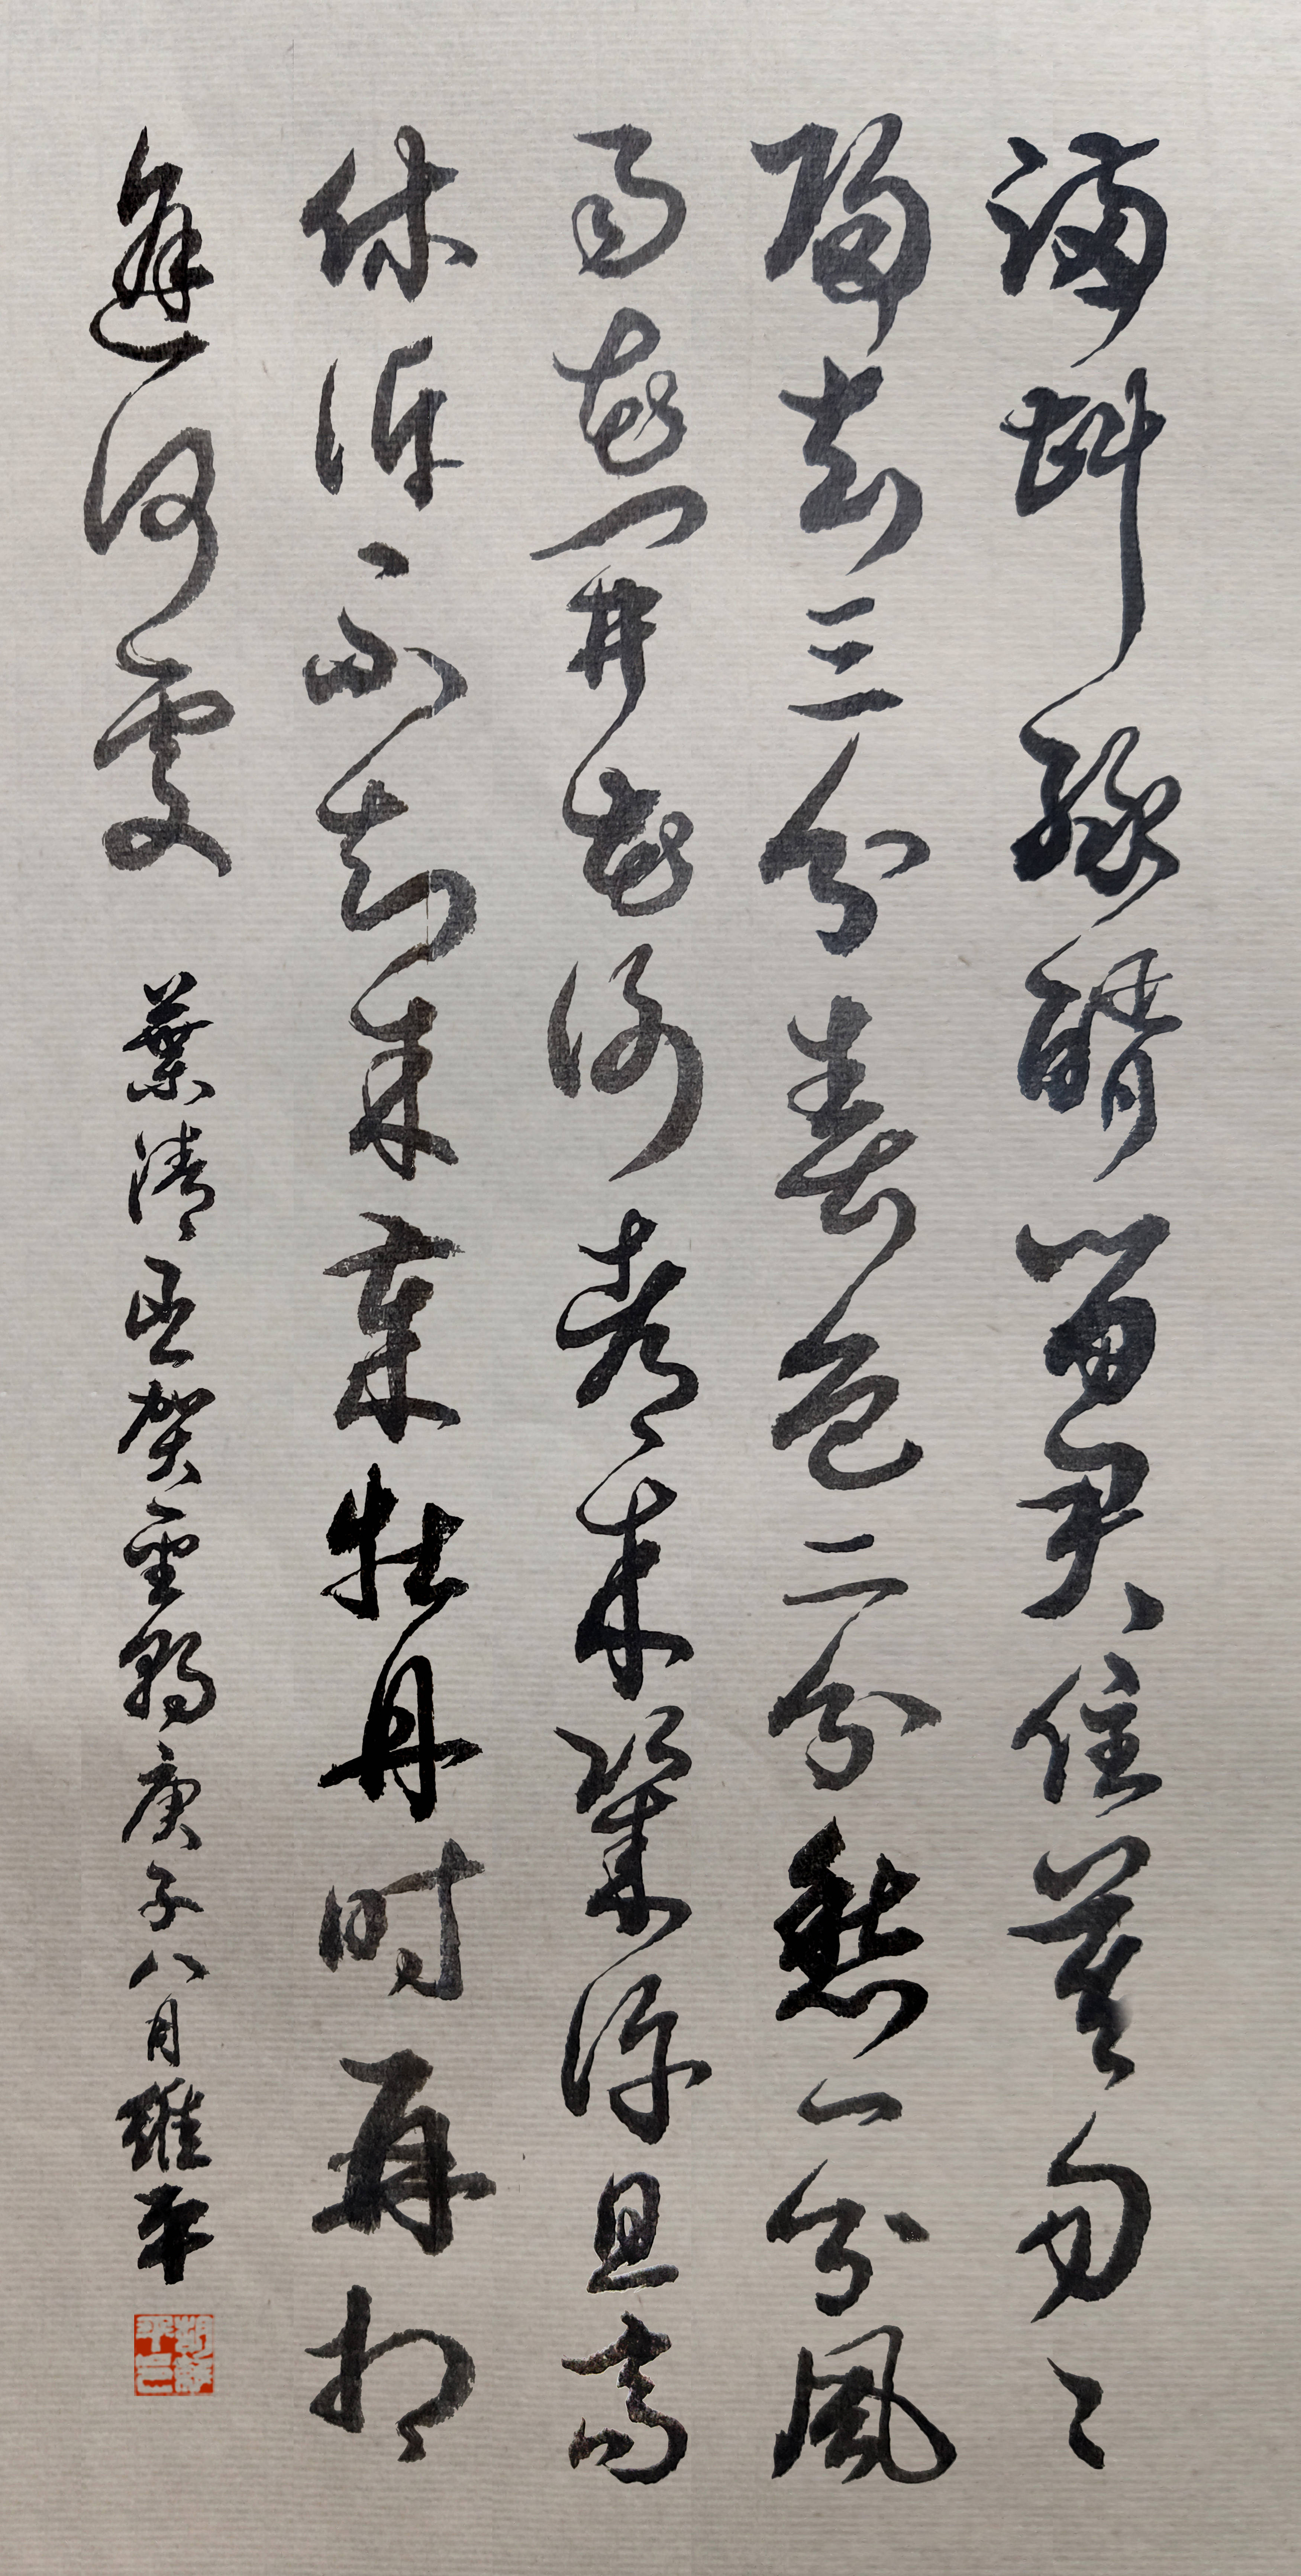 滿斟綠醑留君住莫匆〻
歸去三分春色二分愁一分風
雨花開花謝都来幾許且高
休訴不知来歲牡丹時再相
逢何處
葉清臣賀聖朝庚子八月維平